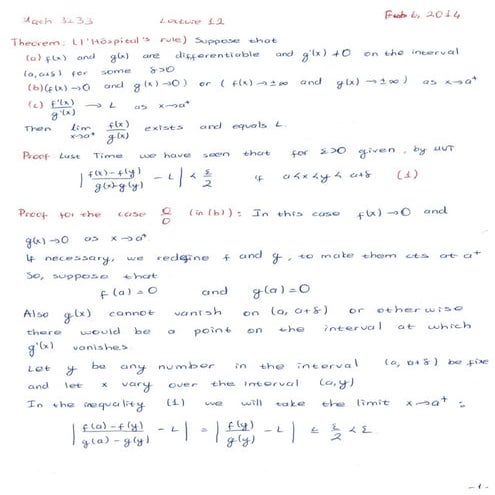 Math 3233 Lecture 12 Feb 6, 2014
Theorem: (L'Hôspital's rule) Suppose that
(a) f(x) and g(x) are differentiable and g'(x) ≠ 0 on the interval
(a, a+δ) for some δ>0
(b) (f(x) → 0 and g(x) → 0) or (f(x) → ±∞ and g(x) → ±∞) as x→a⁺
(c) f'(x)/g'(x) → L as x→a⁺
Then lim x→a⁺ f(x)/g(x) exists and equals L.
Proof Last Time we have seen that for ε>0 given, by MVT
| (f(x)-f(y))/(g(x)-g(y)) - L | < ε/2 if a<x<y<a+δ (1)
Proof for the case 0/0 (in (b)): In this case f(x)→0 and
g(x)→0 as x→a⁺
If necessary, we redefine f and g, to make them cts at a⁺
So, suppose that
f(a)=0 and g(a)=0
Also g(x) cannot vanish on (a, a+δ) or otherwise
there would be a point on the interval at which
g'(x) vanishes.
Let y be any number in the interval (a, a+δ) be fixe
and let x vary over the interval (a,y)
In the inequality (1) we will take the limit x→a⁺ :
| (f(a)-f(y))/(g(a)-g(y)) - L | = | f(y)/g(y) - L | ≤ ε/2 < ε.
-1-